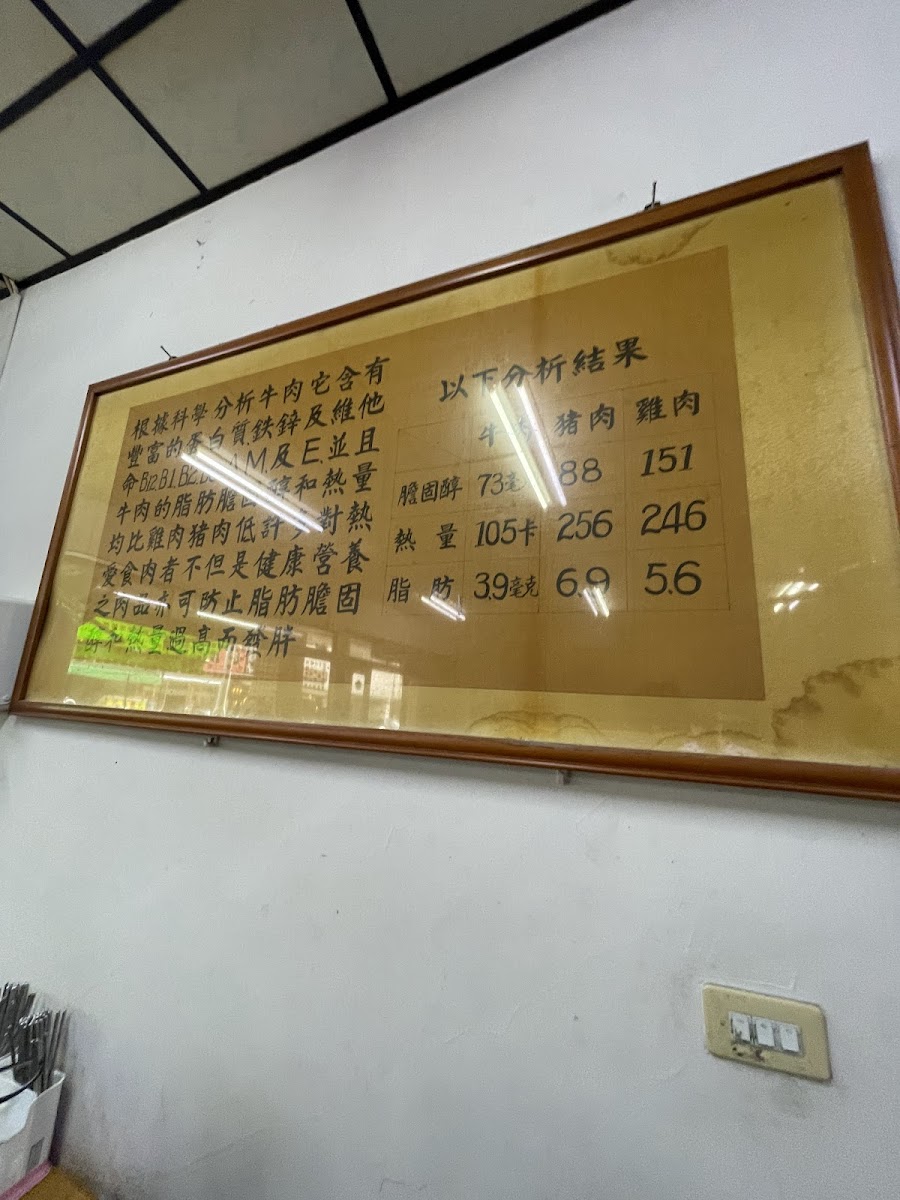 根據科學分析牛肉它含有
豐富的蛋白質.鉄鋅及維他
命B12.B1.B2. A.M.及E.並且
牛肉的脂肪膽固醇和熱量
均比雞肉猪肉低許 對熱
愛食肉者不但是健康營養
之肉品亦可防止脂肪膽固
醇和熱量過高而發胖
以下分析結果
牛肉 猪肉 雞肉
膽固醇 73毫 88 151
熱量 105卡 256 246
脂肪 3.9毫克 6.9 5.6